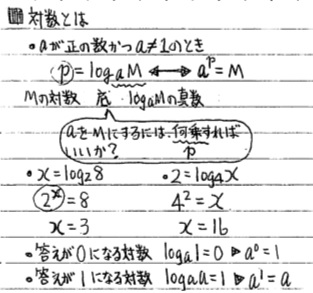 対数とは
・aが正の数かつa≠1のとき
p=logaM ⟷ a^p=M
Mの対数 底 logaMの真数
aをMにするには何乗すれば
いいか? p
・x=log28 ・2=log4x
2^x=8 4^2=x
x=3 x=16
・答えが0になる対数 loga1=0 ▷ a^0=1
・答えが1になる対数 logaa=1 ▷ a^1=a